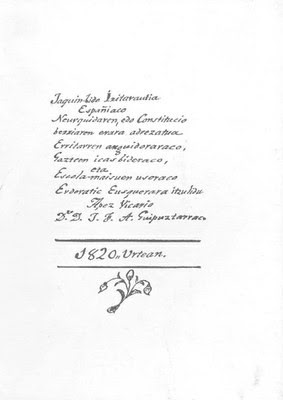 Jaquin-bide Iritarautia
Españiaco
Neurquidaren, edo Constitucio
berriaren erara adrezatua
Erritarren arguidoraraco,
Gazteen icasbideraco,
eta
Escola-maisuen usoraco
Erderatic Eusquerara itzulidu
Apez Vicario
Dn. D. J. F. A. Guipuztarrac.
1820n. Urtean.